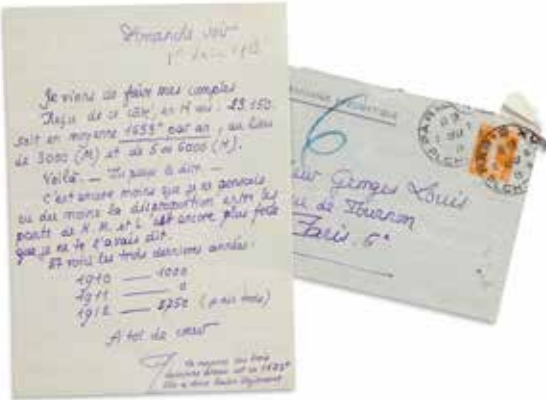 Dimanche soir
1er
Je viens de faire mes comptes
Reçu de ce côté, en 14 ans : 23.150
soit en moyenne 1653 par an, au lieu
de 3000 (M) et de 5 ou 6000 (H).
Voilà — Tu peux le dire —
c'est encore moins que je ne pensais
ou du moins la disproportion entre les
parts de H. M. et L. est encore plus forte
que je ne te l'avais dit.
Et voici les trois dernières années :
1910 —— 1000
1911 —— 0
1912 —— 3750
A toi de cœur
La moyenne des trois
dernières années est de 1583
6
Georges Louis
de Tournon
Paris. 6e
PARIS